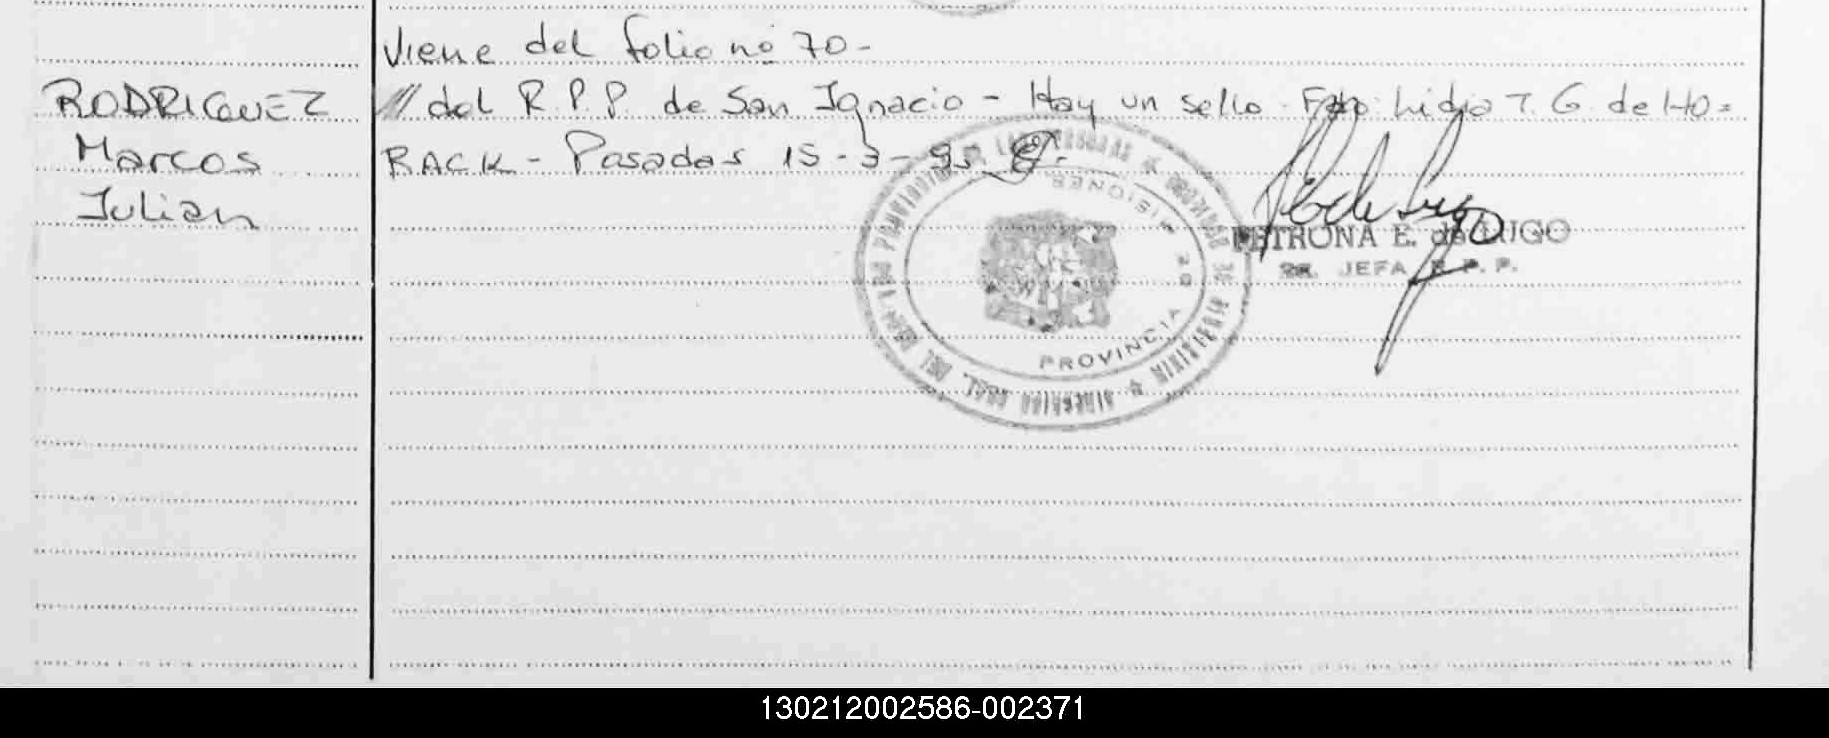 Viene del folio nº 70-
RODRIGUEZ
Marcos
Julian
/// del R.P.P. de San Ignacio - Hay un sello. Fdo: Lidia T. G. de HO=
RACK - Posadas 15-3-95.
MISIONES
DE
PROVINCIA
PETRONA E. de LUGO
JEFA R.P.P.
130212002586-002371